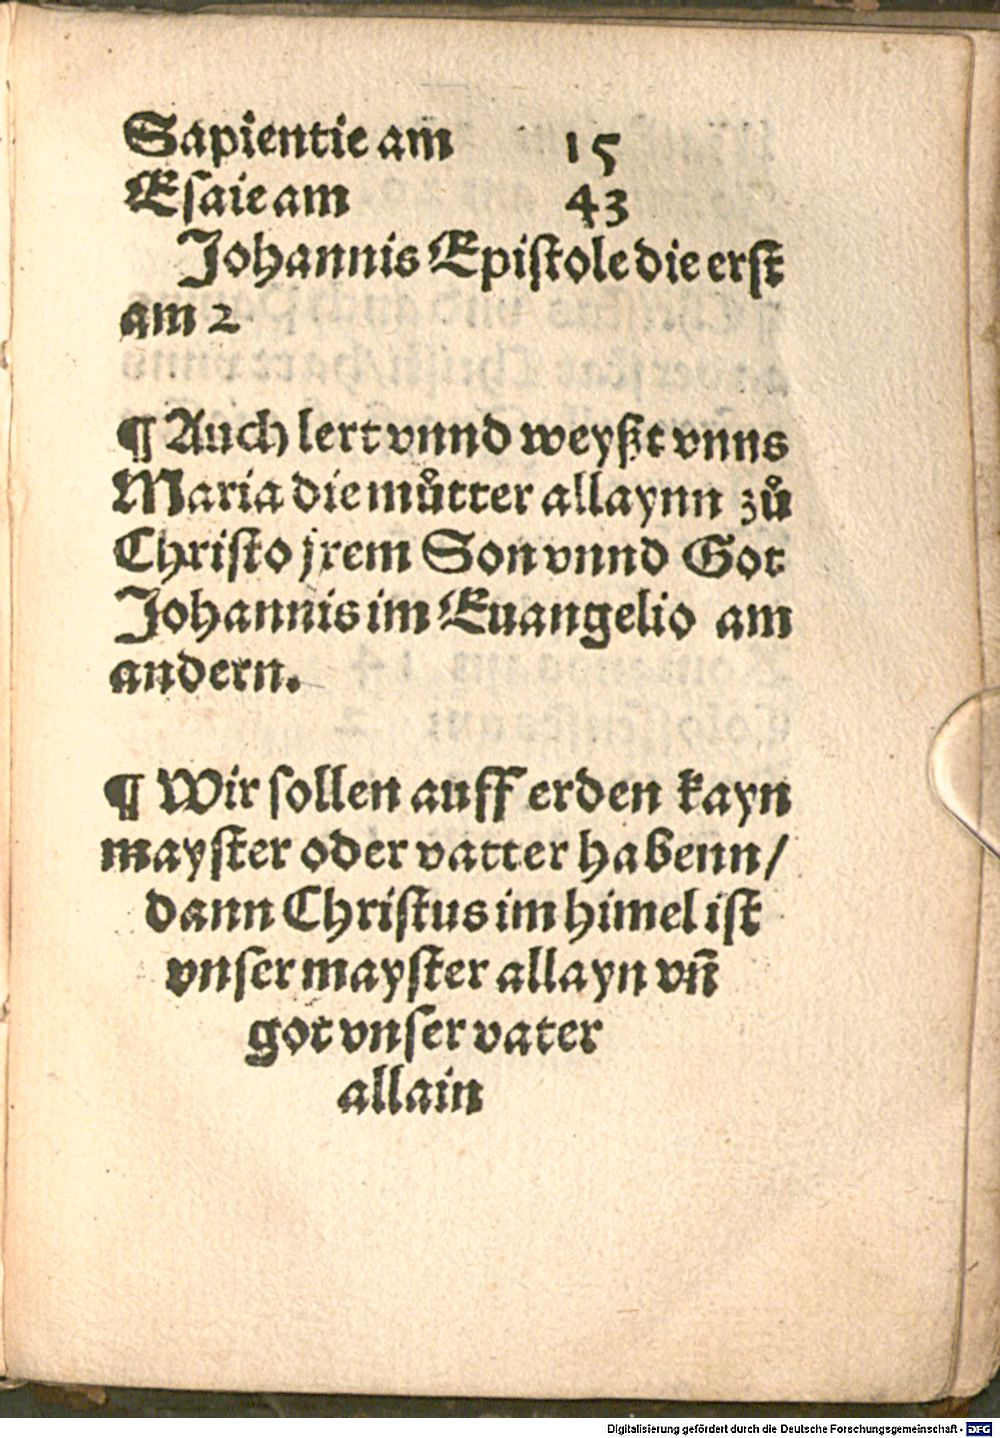 Sapientie am 15
Esaie am 43
Johannis Epiſtole die erſt
am 2
¶ Auch lert vnnd weyßt vnns
Maria die můtter allaynn zů
Chriſto jrem Son vnnd Got
Johannis im Euangelio am
andern.
¶ Wir ſollen auff erden kayn
mayſter oder vatter habenn/
dann Chriſtus im himel iſt
vnſer mayſter allayn vn̄
got vnſer vater
allain
Digitalisierung gefördert durch die Deutsche Forschungsgemeinschaft - DFG